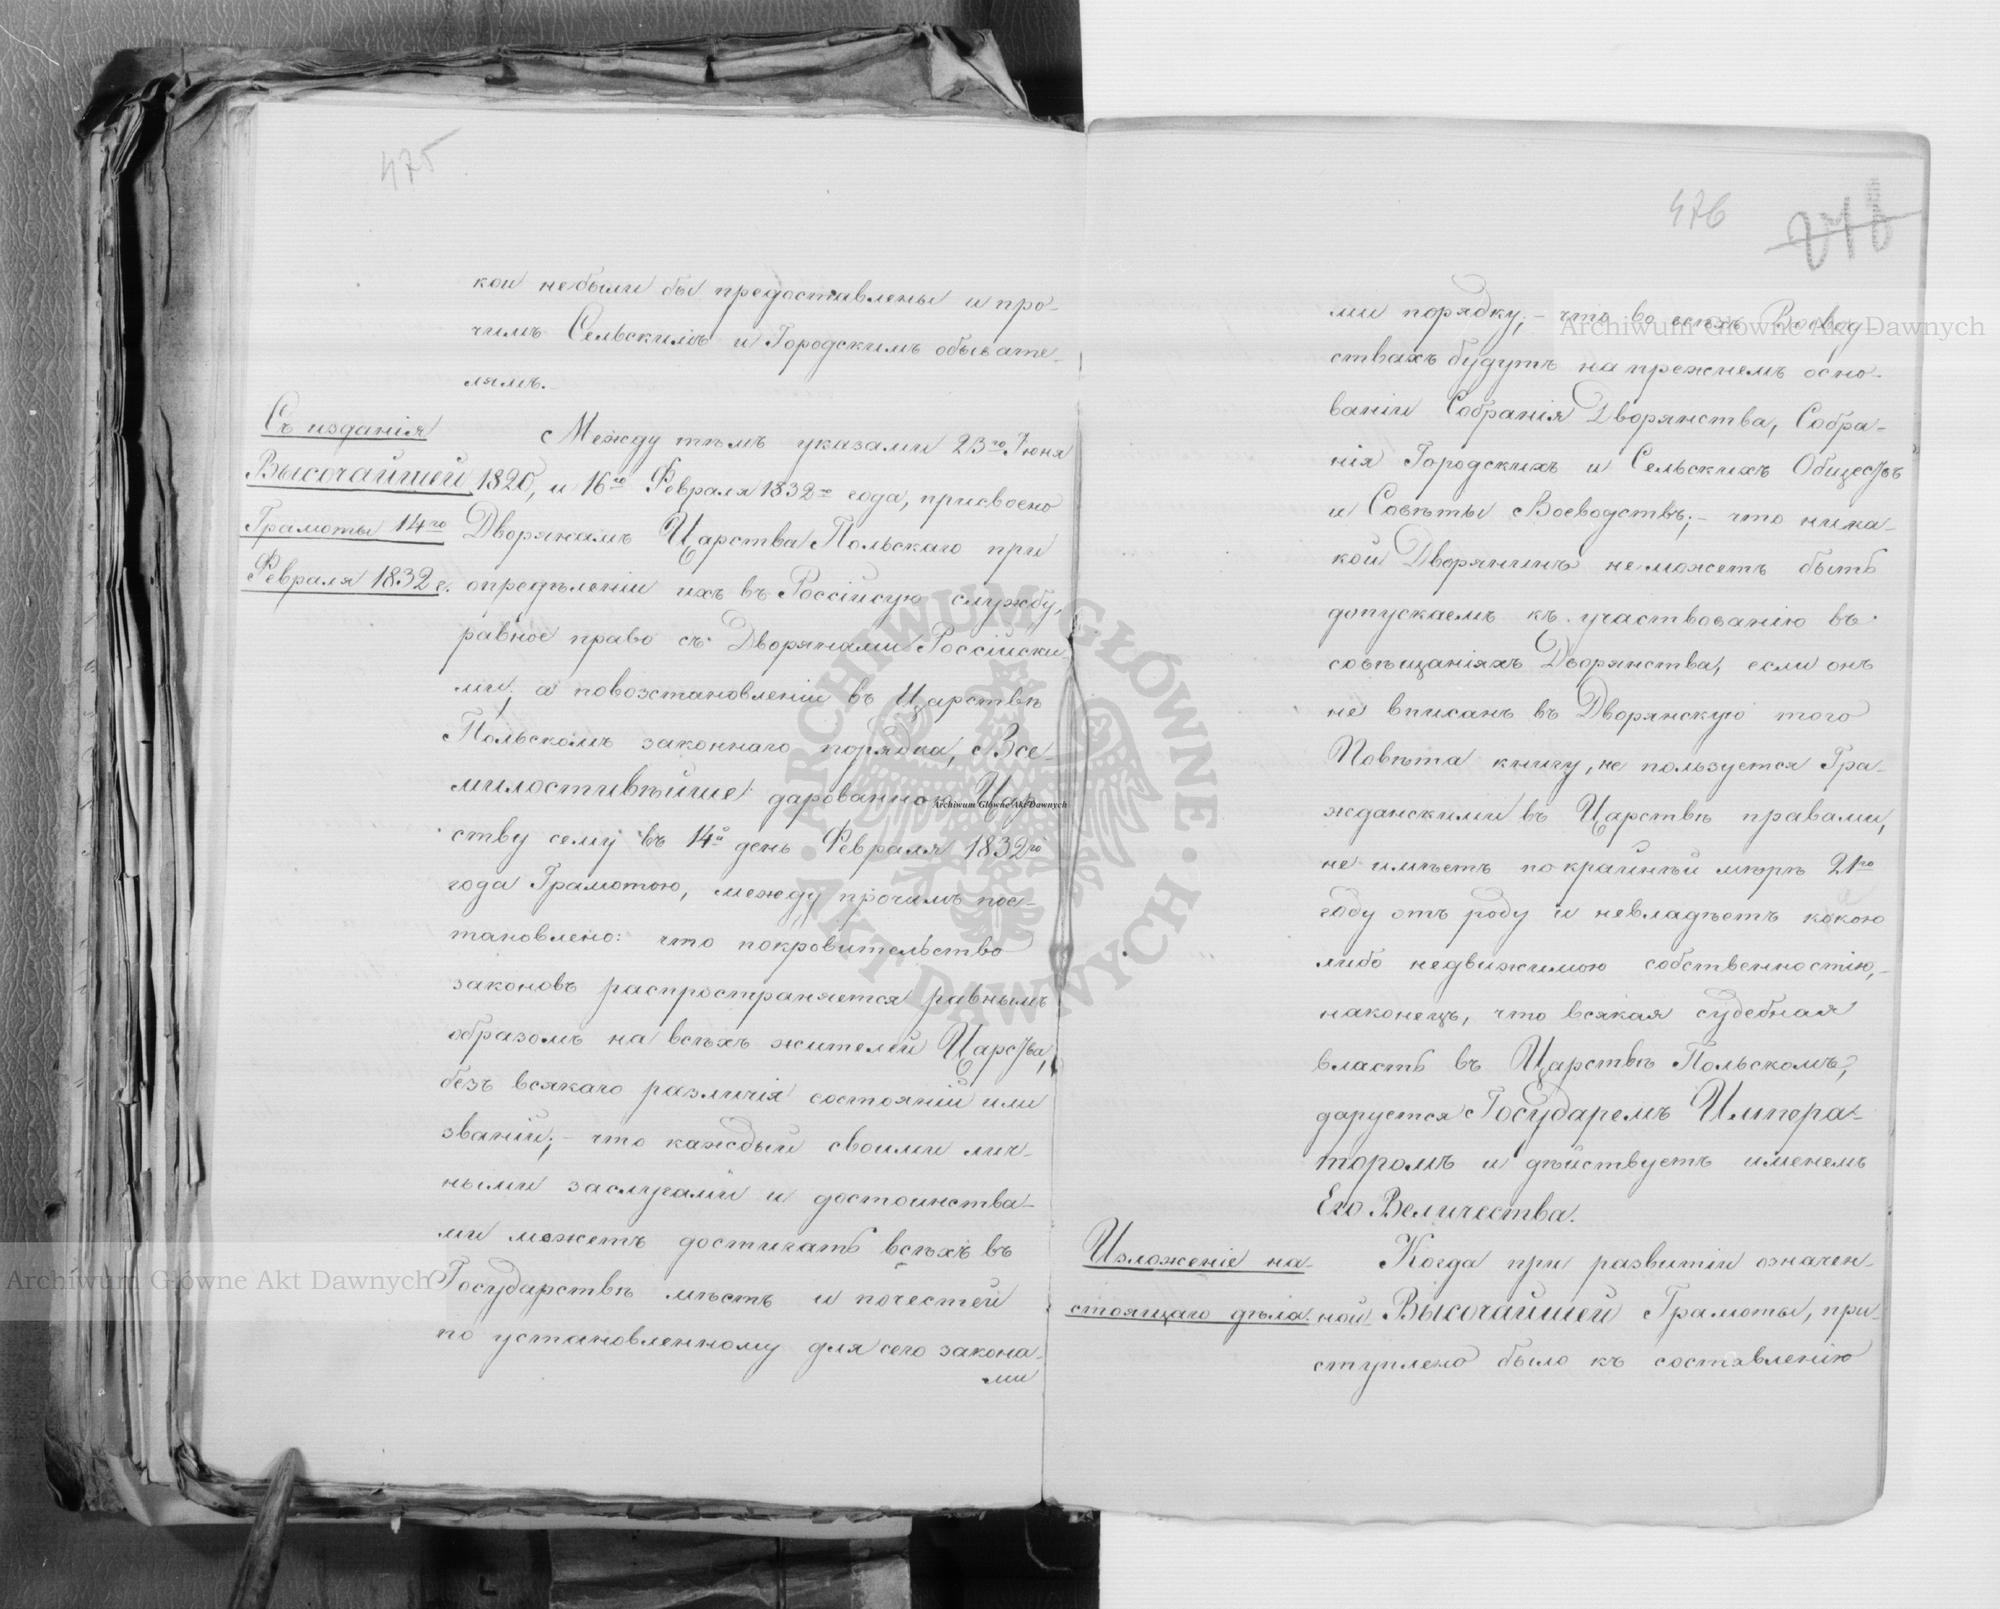 475
кои небыли бы предоставлены и про-
чимъ Сельскимъ и Городскимъ обывате-
лямъ.
Съ изданія
Высочайшей
Грамоты 14го
Февраля 1832 г.
Между тѣмъ указами 23го Іюня
1820, и 16го Февраля 1832го года, присвоено
Дворянамъ Царства Польскаго при
опредѣленіи ихъ въ Россійскую службу,
равное право съ Дворянами Россійски-
ми, а повозстановленіи въ Царствѣ
Польскомъ законнаго порядка, Все-
милостивѣйше дарованною Цар-
ству сему въ 14й день Февраля 1832го
года Грамотою, между прочимъ пос-
тановлено: что покровительство
законовъ распространяется равнымъ
образомъ на всѣхъ жителей Царства,
безъ всякаго различія состояній или
званій; - что каждый своими лич-
ными заслугами и достоинства-
ми можетъ достигать всѣхъ въ
Государствѣ мѣстъ и почестей
по установленному для сего закона-
ми
476
ми порядку; - что во всѣхъ Воевод-
ствахъ будутъ на прежнемъ осно-
ваніи Собранія Дворянства, Собра-
нія Городскихъ и Сельскихъ Обществъ
и Совѣты Воеводствъ; - что ника-
кой Дворянинъ неможетъ быть
допускаемъ къ участвованію въ
совѣщаніяхъ Дворянства, если онъ
не вписанъ въ Дворянскую того
Повѣта книгу, не пользуется Гра-
жданскими въ Царствѣ правами,
не имѣетъ по крайнѣй мѣрѣ 21го
году отъ роду и невладѣетъ какою
либо недвижимою собственностію, -
наконецъ, что всякая судебная
власть въ Царствѣ Польскомъ,
даруется Государемъ Импера-
торомъ и дѣйствуетъ именемъ
Его Величества.
Изложеніе на-
стоящаго дѣла.
Когда при развитіи означен-
ной Высочайшей Грамоты, при-
ступлено было къ составленію
Archiwum Główne Akt Dawnych
Archiwum Główne Akt Dawnych
Archiwum Główne Akt Dawnych
ARCHIWUM GŁÓWNE · AKT DAWNYCH ·